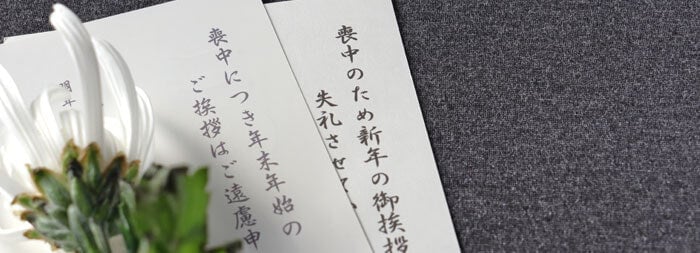 喪中のため新年の御挨拶
失礼させて
喪中につき年末年始の
ご挨拶はご遠慮申